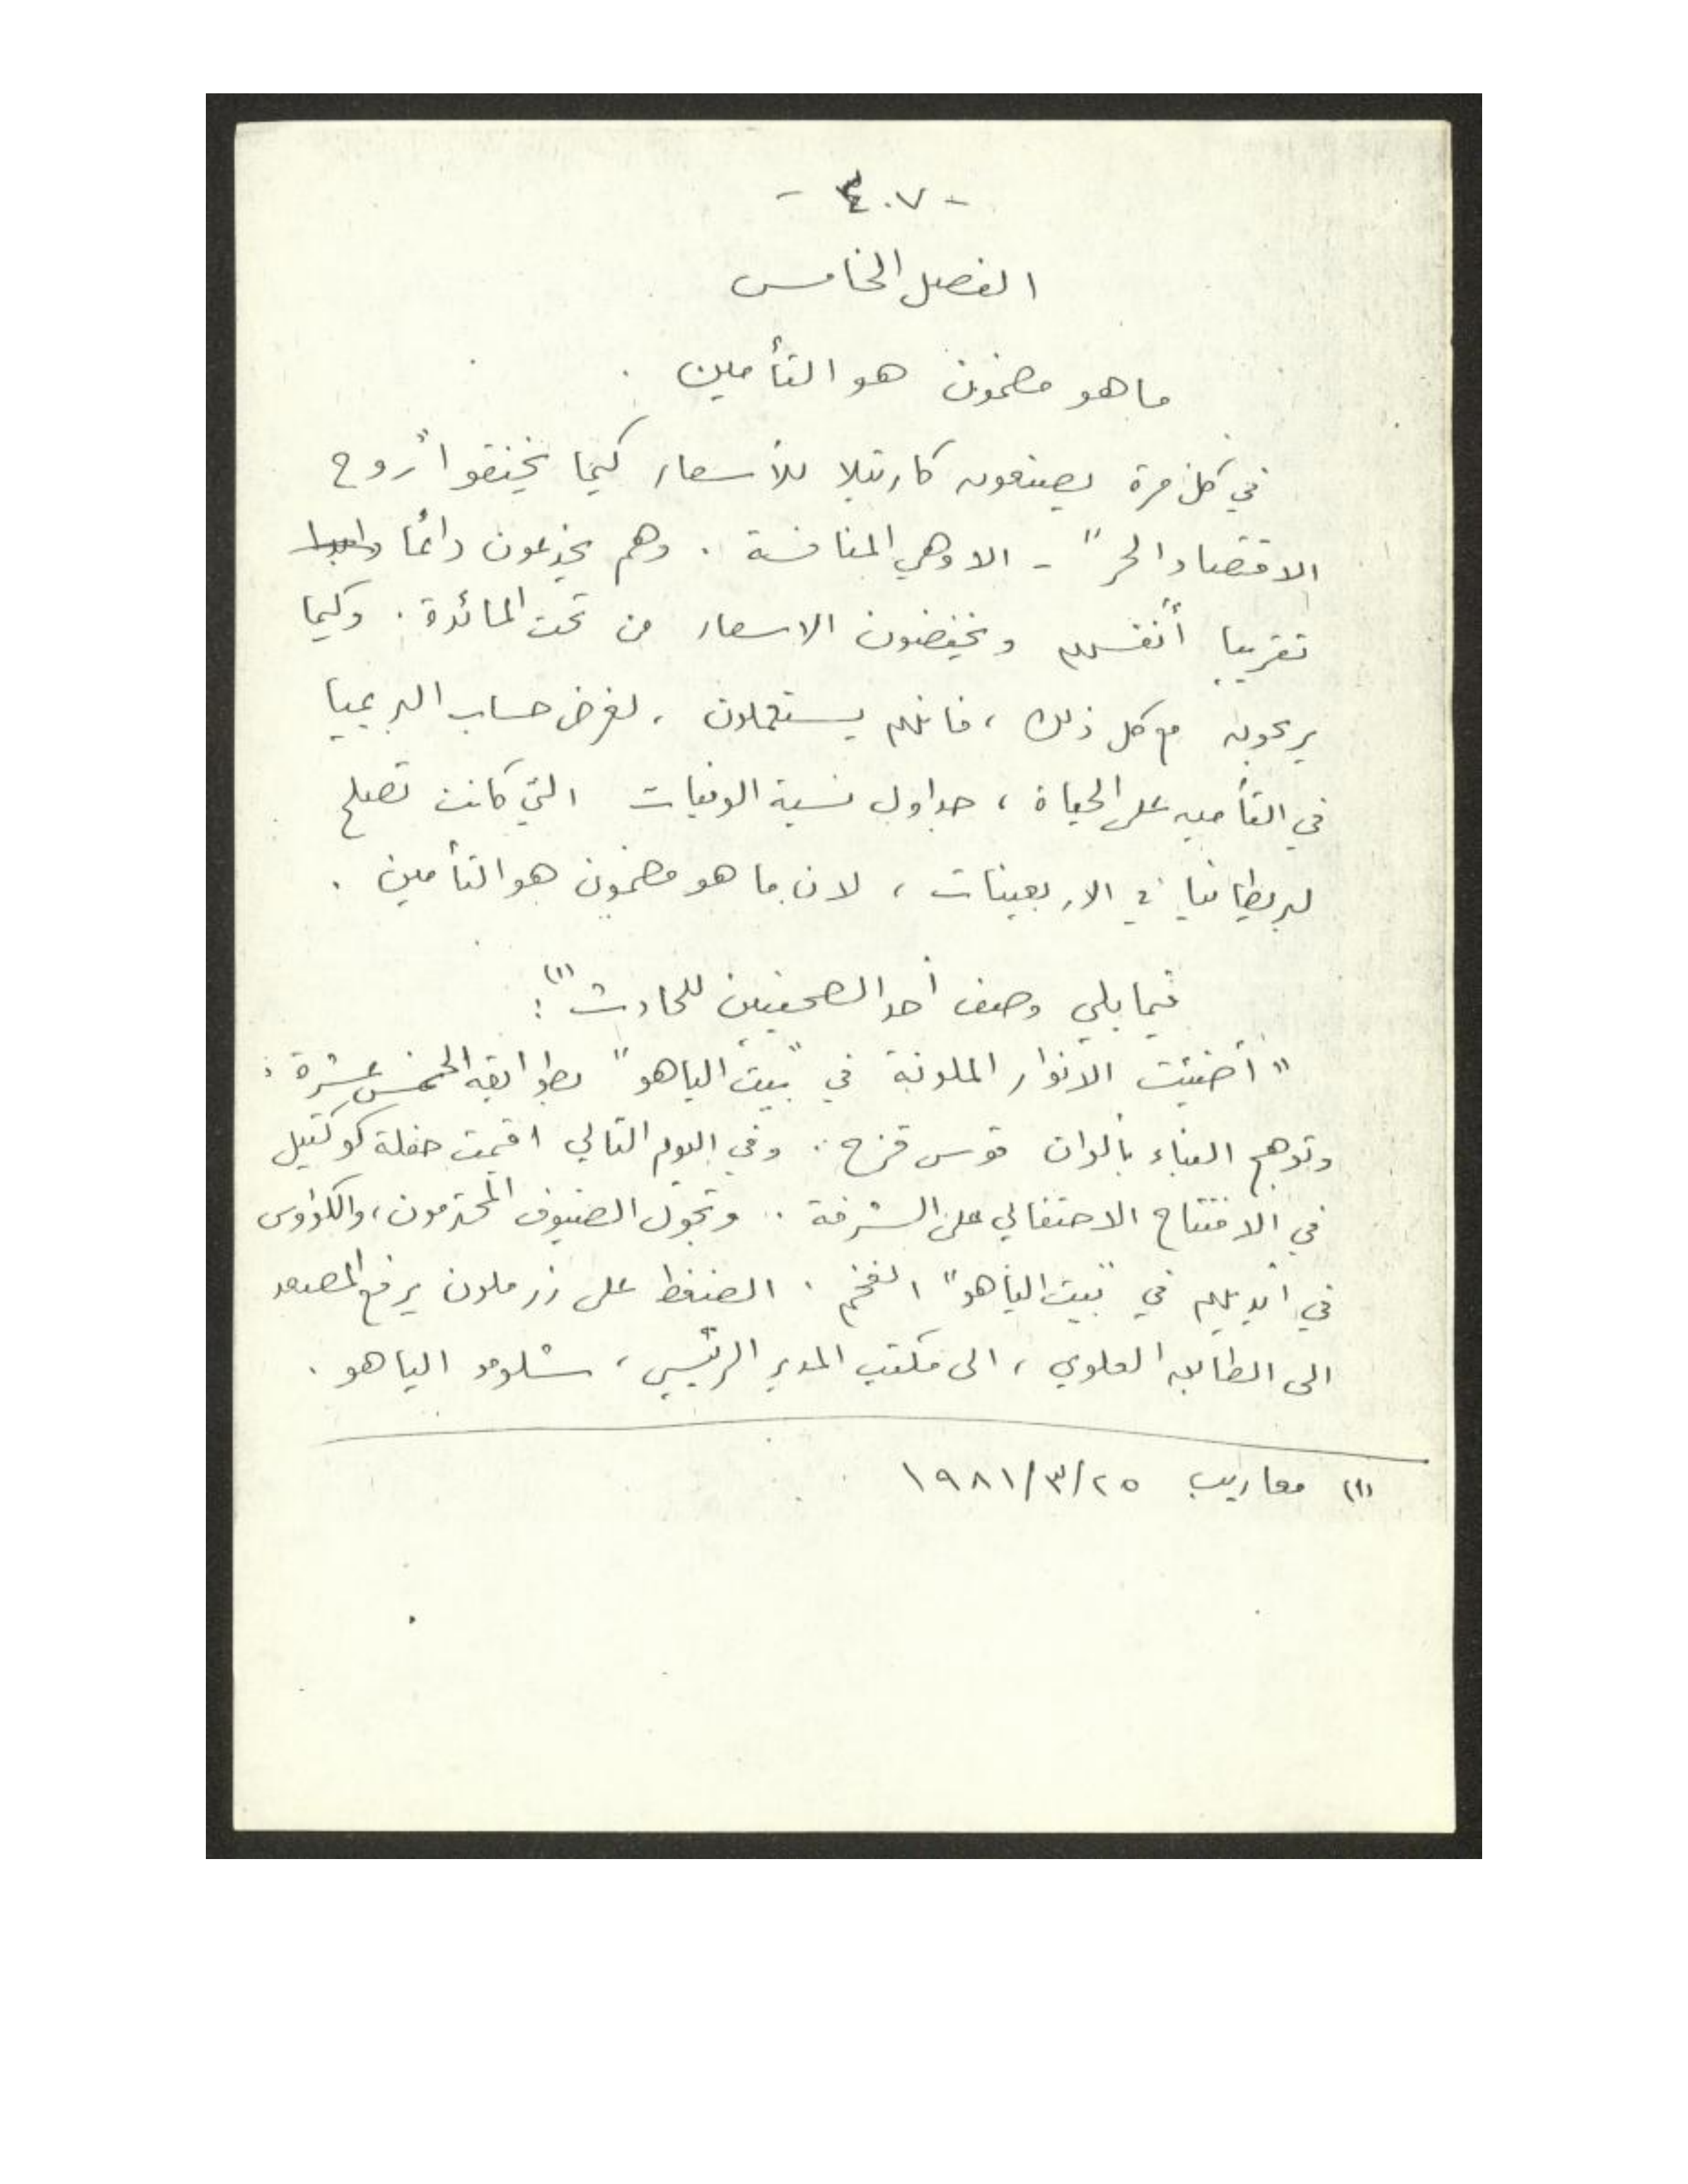 - ٤٠٧ -
الفصل الخامس
ما هو مضمون هو التأمين .
في كل مرة يصنعون كارتيلا للأسعار كيما يخنقوا "روح
الاقتصاد الحر" - الا وهي المنافسة . وهم يخدعون دائما وابدا
تقريبا أنفسهم ويخفضون الاسعار من تحت المائدة . وكيما
يربحون مع كل ذلك ، فانهم يستعملون ، لغرض حساب البريميا
في التأمين على الحياة ، جداول نسبة الوفيات التي كانت تصلح
لبريطانيا في الاربعينات ، لان ما هو مضمون هو التأمين .
فيما يلي وصف أحد الصحفيين للحادث (١) :
" أضيئت الانوار الملونة في "بيت الياهو" بطوابقه الخمس عشرة :
وتوهج البناء بألوان قوس قزح .. وفي اليوم التالي اقيمت حفلة كوكتيل
في الافتتاح الاحتفالي على الشرفة .. وتجول الضيوف المحترمون ، والكؤوس
في أيديهم في "بيت الياهو" الفخم . الضغط على زر ملون يرفع المصعد
الى الطابق العلوي ، الى مكتب المدير الرئيسي ، شلومو الياهو .
(١) معاريب ٢٥/٣/١٩٨١